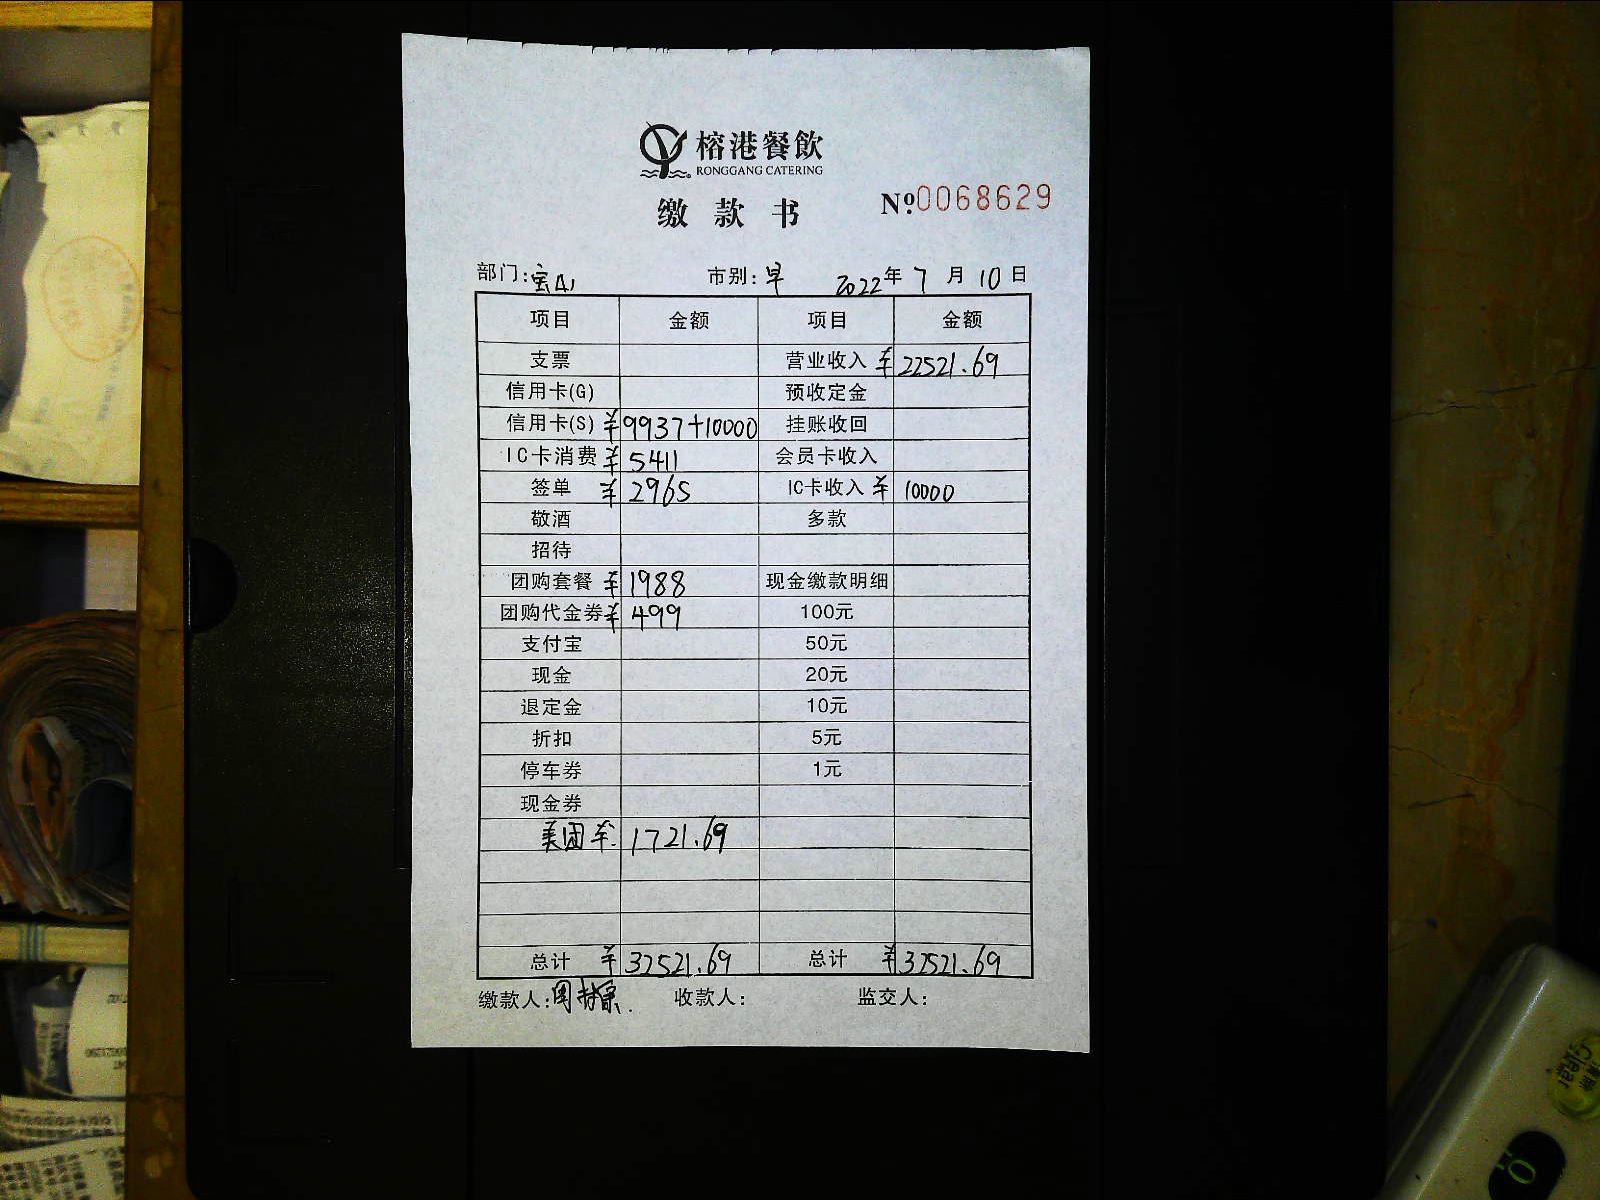 榕港餐飲
RONGGANG CATERING
缴款书 №0068629
部门:宝山 市别:早 2022年7月10日
项目 金额 项目 金额
支票 营业收入 ¥22521.69
信用卡(G) 预收定金
信用卡(S) ¥9937+10000 挂账收回
IC卡消费 ¥5411 会员卡收入
签单 ¥2965 IC卡收入 ¥10000
敬酒 多款
招待
团购套餐 ¥1988 现金缴款明细
团购代金券 ¥499 100元
支付宝 50元
现金 20元
退定金 10元
折扣 5元
停车券 1元
现金券
美团 ¥1721.69
总计 ¥32521.69 总计 ¥32521.69
缴款人: 收款人: 监交人:
Clear